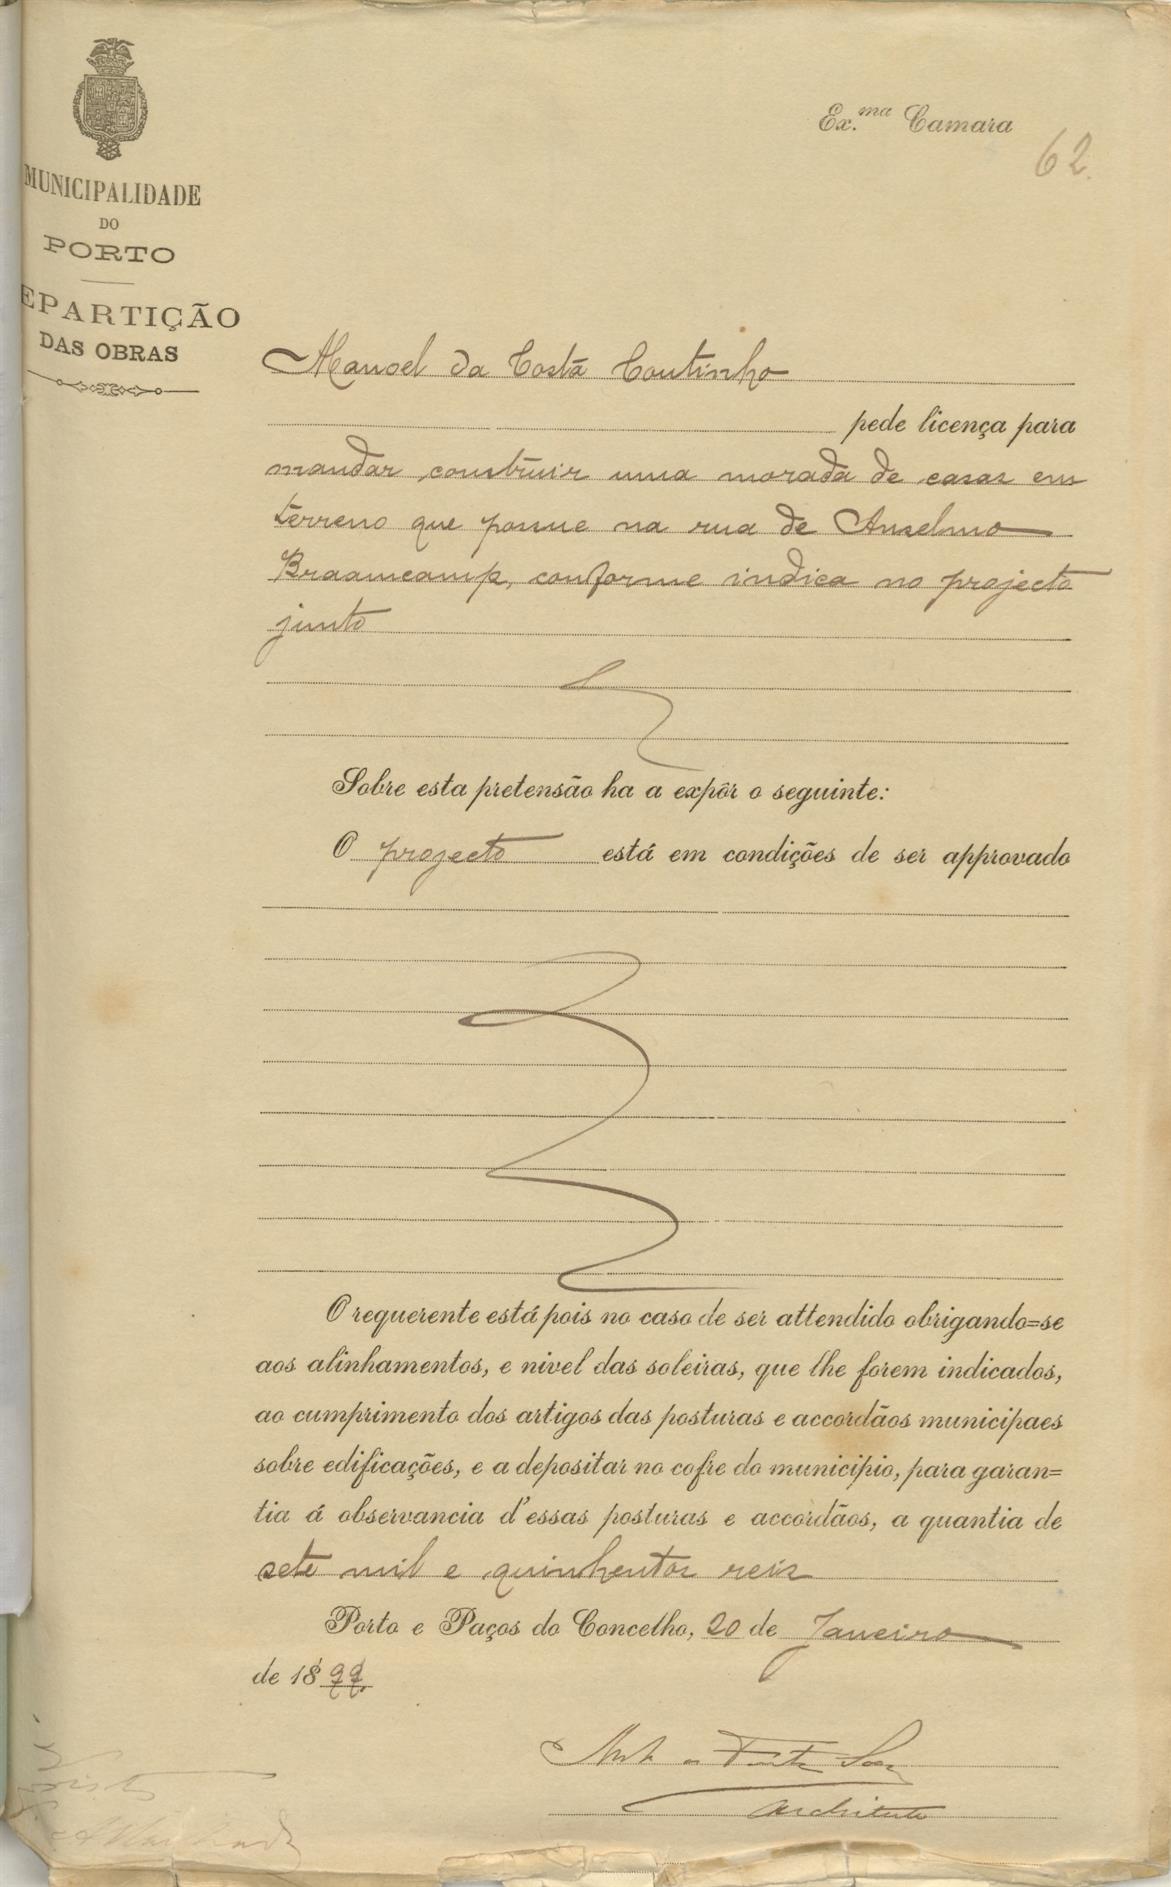 MUNICIPALIDADE
DO
PORTO
EPARTIÇÃO
DAS OBRAS
Ex.ma Camara
62
Manoel da Costa Coutinho
pede licença para
mandar construir uma morada de casas em
terreno que possue na rua de Anselmo
Braamcamp, conforme indica no projecto
junto
Sobre esta pretensão ha a expôr o seguinte:
O projecto está em condições de ser approvado
O requerente está pois no caso de ser attendido obrigando=se
aos alinhamentos, e nivel das soleiras, que lhe forem indicados,
ao cumprimento dos artigos das posturas e accordãos municipaes
sobre edificações, e a depositar no cofre do municipio, para garan=
tia á observancia d'essas posturas e accordãos, a quantia de
sete mil e quinhentos reis
Porto e Paços do Concelho, 20 de Janeiro
de 1899.
Architecto